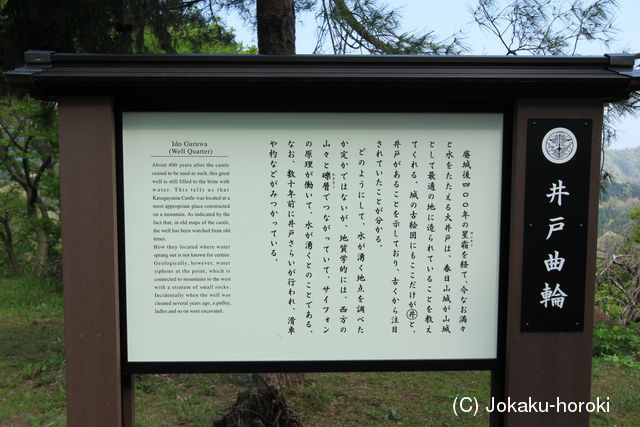 井戸曲輪
廃城後四〇〇年の星霜を経て今なお満々
と水をたたえる大井戸は、春日山城が山城
として最適の地に造られていることを教え
てくれる。城の古絵図にもここだけが井と、
井戸があることを示しており、古くから注目
されていたことが分かる。
どのようにして、水が湧く地点を調べた
か定かではないが、地質学的には、西方の
山々と礫層でつながっていて、サイフォン
の原理が働いて、水が湧くとのことである。
なお、数十年前に井戸さらいが行われ、滑車
や杓などがみつかっている。
Ido Guruwa
(Well Quarter)
About 400 years after the castle
ceased to be used as such, this great
well is still filled to the brim with
water. This tells us that
Kasugayama Castle was located at a
most appropriate place constructed
on a mountain. As indicated by the
fact that, in old maps of the castle,
the well has been watched from old
times.
How they located where water
sprang out is not known for certain.
Geologically, however, water
siphons at the point, which is
connected to mountains to the west
with a stratum of small rocks.
Incidentally when the well was
cleaned several years ago, a pulley,
ladles and so on were excavated.
(C) Jokaku-horoki